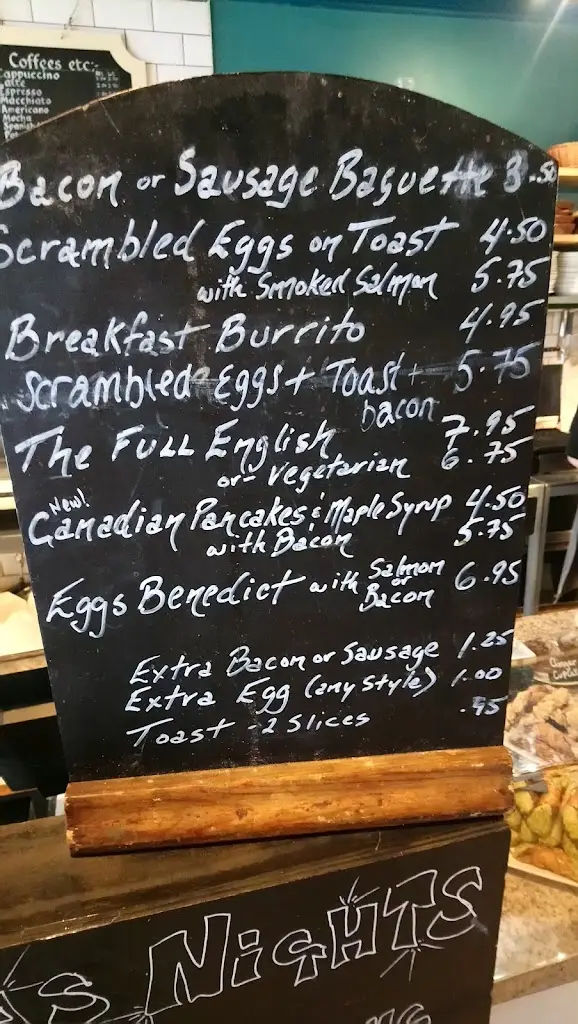 Coffees etc:-
Cappuccino
Latte
Espresso
Macchiato
Americano
Mocha
Bacon or Sausage Baguette 3.50
Scrambled Eggs on Toast 4.50
with Smoked Salmon 5.75
Breakfast Burrito 4.95
Scrambled Eggs + Toast + 5.75
bacon
The FULL English 7.95
or vegetarian 6.75
New!
Canadian Pancakes & Maple Syrup 4.50
with Bacon 5.75
Eggs Benedict with Salmon or Bacon 6.95
Extra Bacon or Sausage 1.25
Extra Egg (any style) 1.00
Toast - 2 Slices .95
NiGHTS